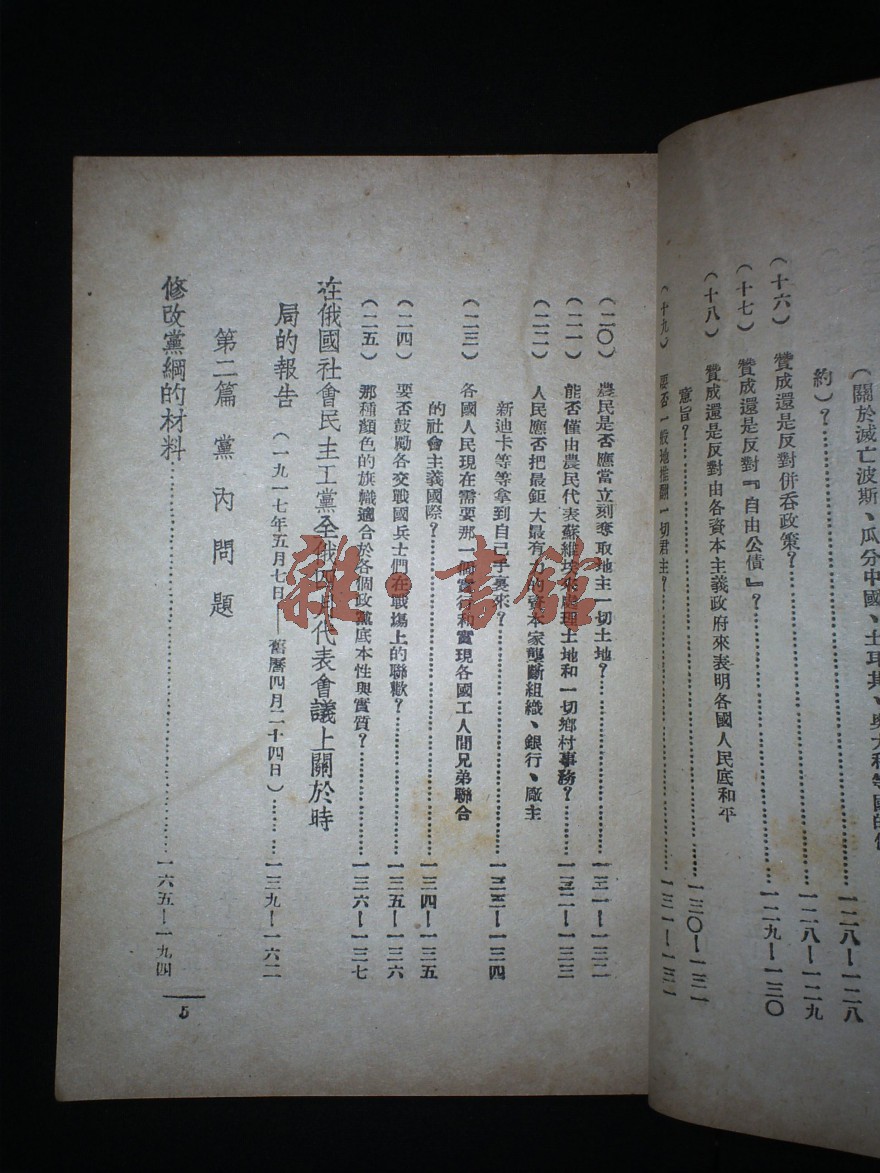 （關於滅亡波斯、瓜分中國、土耳其、奧大利等國的
約）？……一二八—一二八
（十六）　贊成還是反對併吞政策？……一二八—一二九
（十七）　贊成還是反對『自由公債』？……一二九—一三〇
（十八）　贊成還是反對由各資本主義政府來表明各國人民底和平
意旨？……一三〇—一三一
（十九）　要否一般地推翻一切君主？……一三一—一三一
（二〇）　農民是否應當立刻奪取地主一切土地？……一三一—一三二
（二一）　能否僅由農民代表蘇維埃來處理土地和一切鄉村事務？……一三二—一三三
（二二）　人民應否把最鉅大最有力的資本家壟斷組織、銀行、廠主
新迪卡等等拿到自己手裏來？……一三三—一三四
（二三）　各國人民現在需要那一個實行和實現各國工人間兄弟聯合
的社會主義國際？……一三四—一三五
（二四）　要否鼓勵各交戰國兵士們在戰場上的聯歡？……一三五—一三六
（二五）　那種顏色的旗幟適合於各個政黨底本性與實質？……一三六—一三七
在俄國社會民主工黨全俄四月代表會議上關於時
局的報告　（一九一七年五月七日——舊曆四月二十四日）……一三九—一六二
第二篇　黨內問題
修改黨綱的材料……一六五—一九四
5
雜·書館